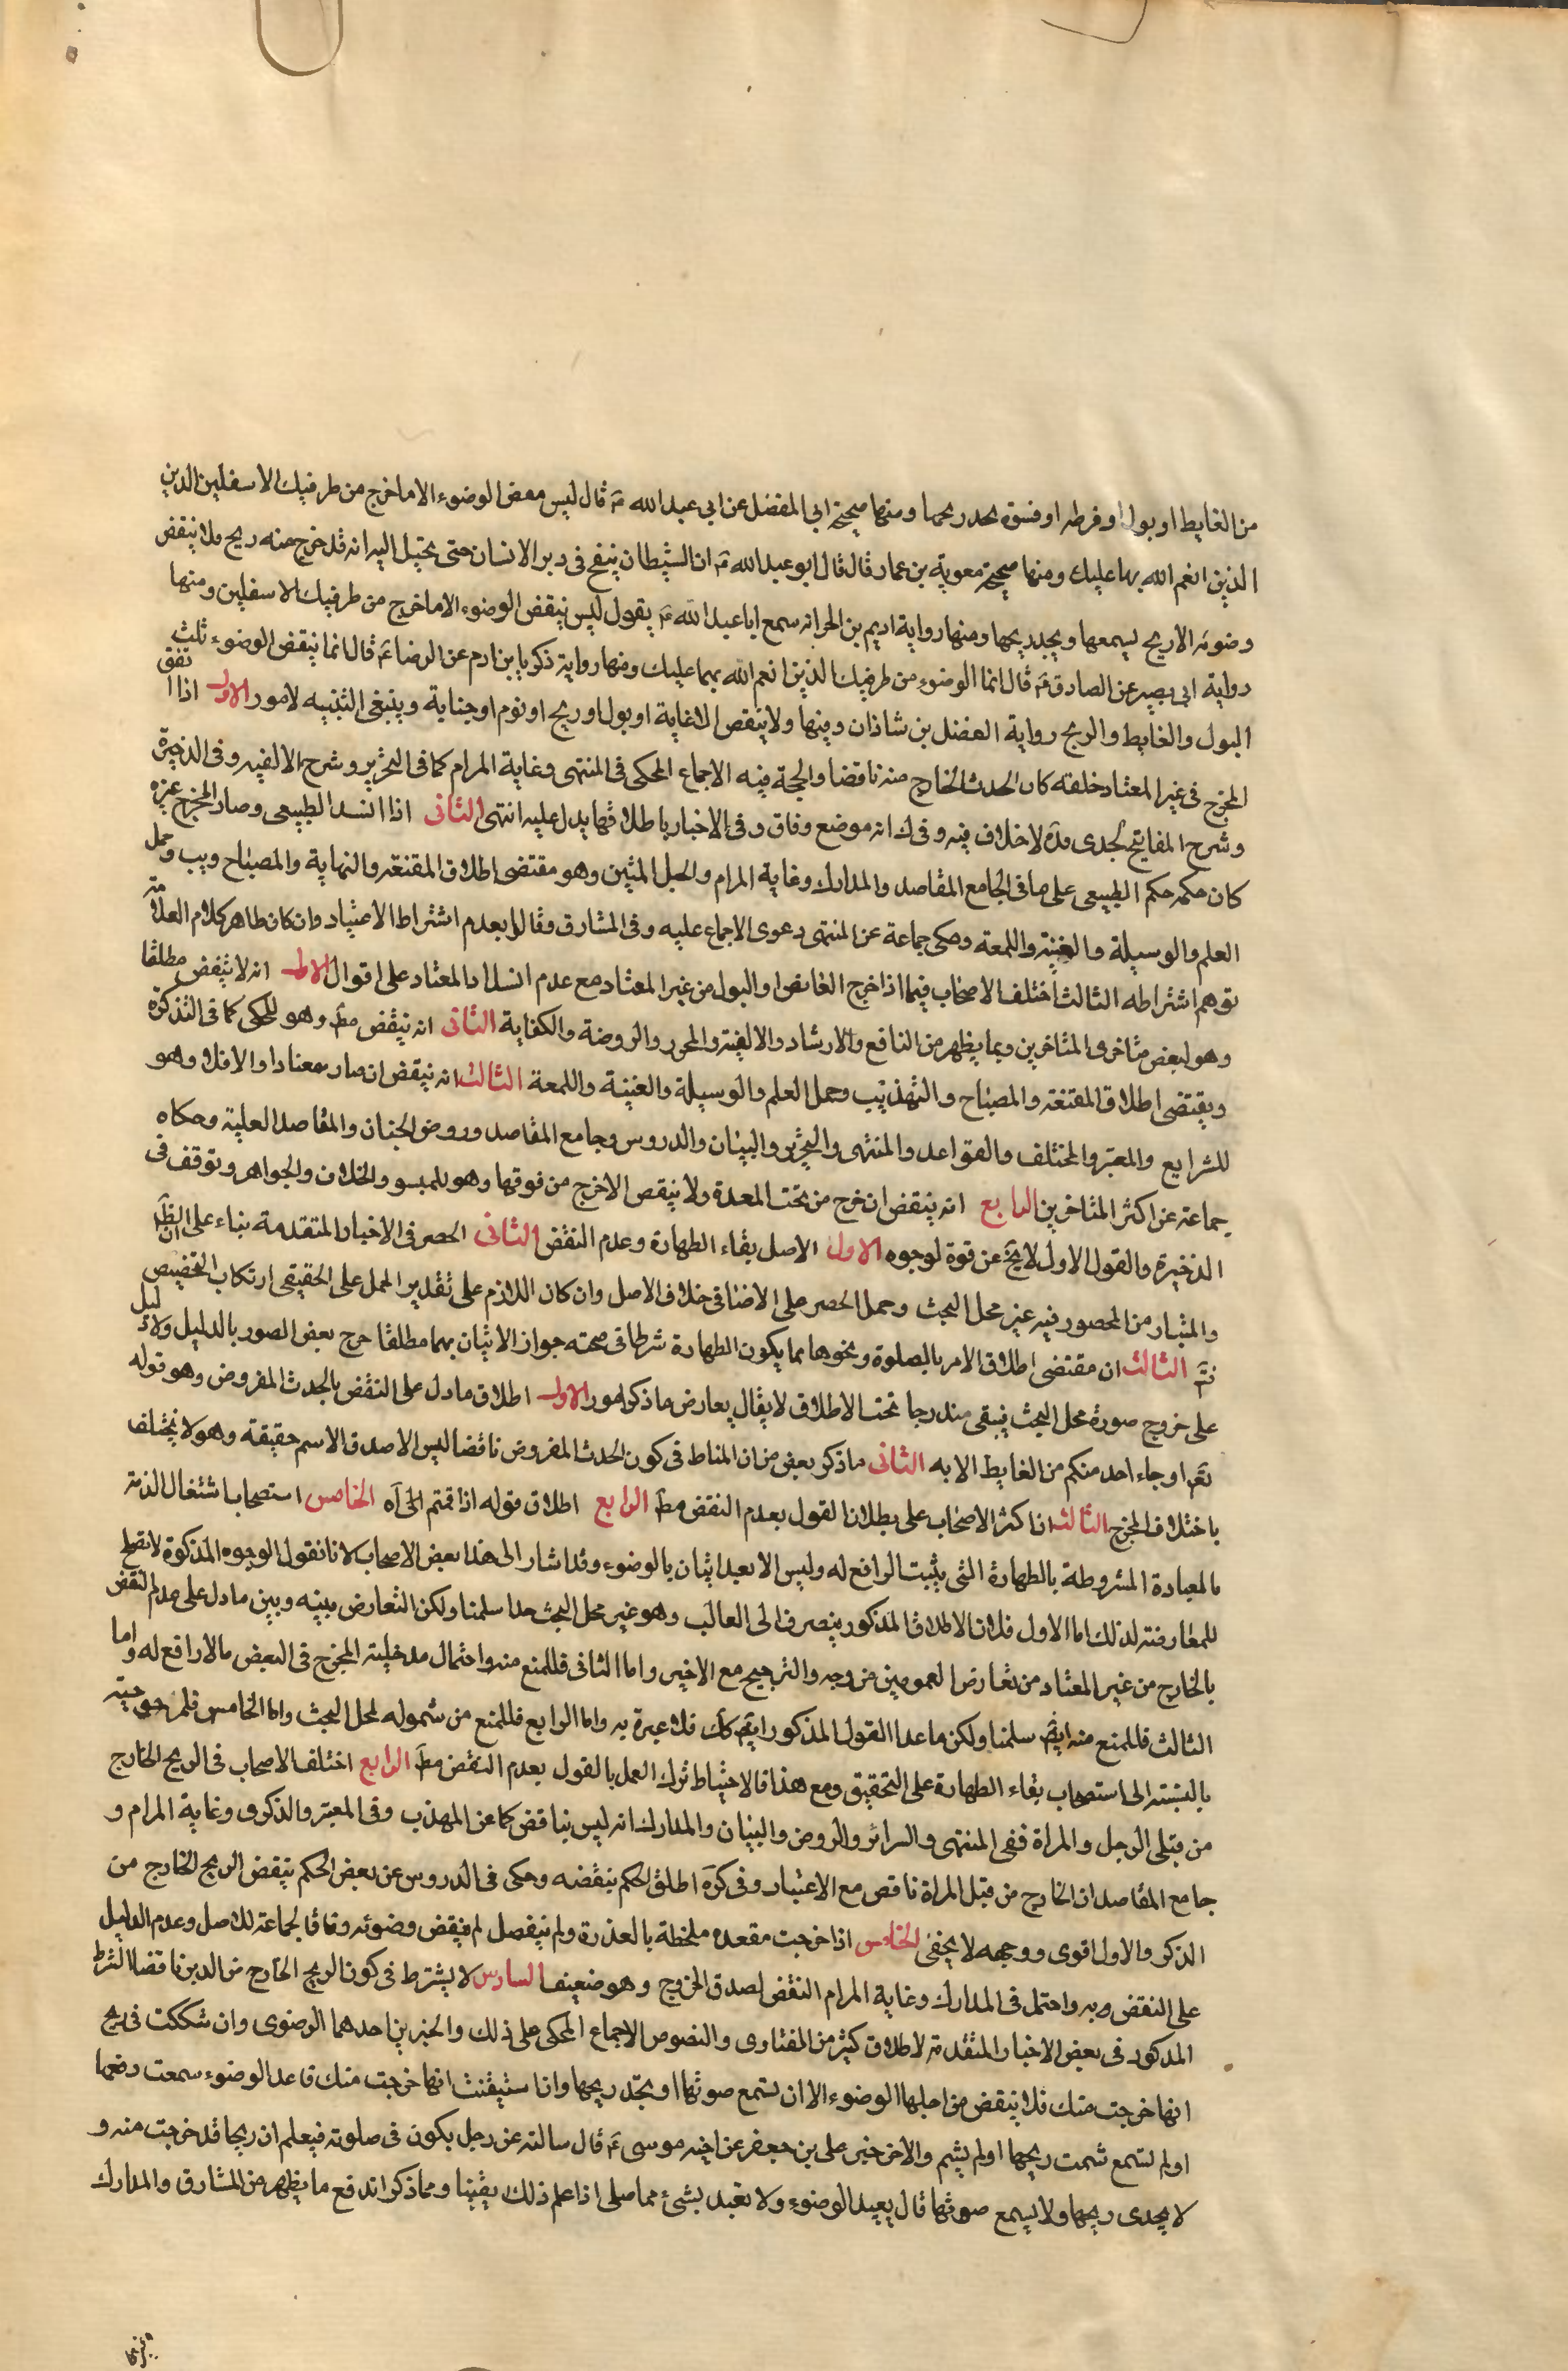 من الغايط او بول او فرطه او فسوة يجد ريحها ومنها صحيحة ابى المفضل عن ابى عبد الله ع قال ليس ينقض الوضوء الا ما خرج من طرفيك الاسفلين الذين
الذين انعم الله بها عليك ومنها صحيحة معوية بن عمار قال قال ابو عبد الله ع ان الشيطان ينفخ فى دبر الانسان حتى يخيل اليه انه قد خرج منه ريح فلا ينقض
وضوئه الا ريح يسمعها ويجد ريحها ومنها رواية اديم بن الحر انه سمع ابا عبد الله ع يقول ليس ينقض الوضوء الا ما خرج من طرفيك الاسفلين ومنها
رواية ابى بصير عن الصادق ع قال انما الوضوء من طرفيك الذين انعم الله بهما عليك ومنها رواية زكريا بن ادم عن الرضا ع قال انما ينقض الوضوء ثلث
البول والغايط والريح رواية الفضل بن شاذان ومنها ولا ينقض الا غاية او بول او ريح او نوم او جنابة وينبغى التنبيه لامور الاول اذا اتفق
المخرج فى غير المعتاد خلقه كان الحدث الخارج منه ناقضا والحجة فيه الاجماع المحكى فى المنتهى وغاية المرام كما فى التحرير وشرح الالفيه وفى الذخيرة
وشرح المفاتيح لجدى مده لا خلاف فيه وفى ك انه موضع وفاق وفى الاخبار باطلاقها يدل عليه انتهى الثانى اذا انسد الطبيعى وصار المخرج غيره
كان حكمه حكم الطبيعى على ما فى الجامع المقاصد والمدارك وغاية المرام والحبل المتين وهو مقتضى اطلاق المقنعة والنهاية والمصباح ويب وجمل
العلم والوسيلة والغنية واللمعة وحكى جماعة عن المنتهى دعوى الاجماع عليه وفى المشارق وقالوا بعدم اشتراط الاعتياد وان كان ظاهر كلام العلامة
توهم اشتراطه الثالث اختلف الاصحاب فيما اذا خرج الغايط او البول من غير المعتاد مع عدم انسداد المعتاد على اقوال الاول انه لا ينقض مطلقا
وهو لبعض متاخرى المتاخرين وبما يظهر من النافع والارشاد والالفية والمحرر والروضة والكفاية الثانى انه ينقض مط وهو للمحكى كما فى التذكرة
ويقتضى اطلاق المقنعة والمصباح والتهذيب وجمل العلم والوسيلة والغنية واللمعة الثالث انه ينقض ان صار معتادا والا فلا وهو
للشرايع والمعتبر والمختلف والقواعد والمنتهى والتحرير والبيان والدروس وجامع المقاصد وروض الجنان والمقاصد العلية وحكاه
جماعة عن اكثر المتاخرين الرابع انه ينقض ان خرج من تحت المعدة ولا ينقض الا خرج من فوقها وهو للمبسو والخلاف والجواهر وتوقف فى
الذخيرة والقول الاول لا يخ عن قوة لوجوه الاول الاصل بقاء الطهارة وعدم النقض الثانى الحصر فى الاخبار المتقدمة بناء على ان الظ
والمتبادر من المحصور فيه غير محل البحث وحمل الحصر على الاضافى خلاف الاصل وان كان اللازم على تقدير الحمل على الحقيقى ارتكاب التخصيص
فت الثالث ان مقتضى اطلاق الامر بالصلوة ونحوها مما يكون الطهارة شرطا فى صحته جواز الاتيان بهما مطلقا خرج بعض الصور بالدليل ولا دليل
على خروج صورة محل البحث فيبقى مندرجا تحت الاطلاق لا يقال يعارض ما ذكر امور الاول اطلاق ما دل على النقض بالحدث المفروض وهو قوله
تعم او جاء احد منكم من الغايط الايه الثانى ما ذكر بعض من ان المناط فى كون الحدث المفروض ناقضا ليس الا صدق الاسم حقيقة وهو لا يختلف
باختلاف المخرج الثالث ان اكثر الاصحاب على بطلان القول بعدم النقض مط الرابع اطلاق قوله اذا قمتم الى اه الخامس استصحاب اشتغال الذمة
بالعبادة المشروطة بالطهارة التى يثبت الرافع له وليس الا بعد اتيان بالوضوء وقد اشار الى هذا بعض الاصحاب لانا نقول الوجوه المذكورة لا تصلح
للمعارضة لذلك اما الاول فلان الاطلاق المذكور ينصرف الى الغالب وهو غير محل البحث جدا سلمنا ولكن التعارض بينه وبين ما دل على عدم النقض
بالخارج من غير المعتاد من تعارض العمومين من وجه والترجيح مع الاخير واما الثانى فللمنع منه واحتمال مدخلية المخرج فى البعض مما لا رافع له واما
الثالث فللمنع منه ايض سلمنا ولكن ما عدا القول المذكور ايض كك فلا عبرة به واما الرابع فللمنع من شموله لمحل البحث واما الخامس فلمرجوحيته
بالنسبة الى استصحاب بقاء الطهارة على التحقيق ومع هذا فالاحتياط ترك العمل بالقول بعدم النقض مط الرابع اختلف الاصحاب فى الريح الخارج
من قبلى الرجل والمراة ففى المنتهى والسرائر والروض والبيان والمدارك انه ليس بناقض كما عن المهذب وفى المعتبر والذكرى وغاية المرام و
جامع المقاصد ان الخارج من قبل المراة ناقض مع الاعتبار وفى كره اطلق الحكم بنقضه وحكى فى الدروس عن بعض الحكم بنقض الريح الخارج من
الذكر والاول اقوى ووجهه لا يخفى الخامس اذا خرجت مقعده ملطخة بالعذرة ولم ينفصل لم ينقض وضوئه وفاقا لجماعة للاصل وعدم الدليل
على النقض وبه واحتمل فى المدارك وغاية المرام النقض لصدق الخروج وهو ضعيف السادس لا يشترط فى كون الريح الخارج من الدبر ناقضا الشرط
المذكور فى بعض الاخبار المتقدمة لاطلاق كثير من الفتاوى والنصوص الاجماع المحكى على ذلك والخبرين احدهما الرضوى وان شككت فى ريح
انها خرجت منك فلا ينقض من اجلها الوضوء الا ان تسمع صوتها او تجد ريحها وان استيقنت انها خرجت منك فاعد الوضوء سمعت وقعها
او لم تسمع شممت ريحها او لم يشم والاخر خبر على بن جعفر عن اخيه موسى ع قال سالته عن رجل يكون فى صلوته فيعلم ان ريحا قد خرجت منه و
لا يجدى ريحها ولا يسمع صوتها قال يعيد الوضوء ولا تعبد بشئ مما صلى اذا علم ذلك يقينا ومما ذكر اندفع ما يظهر من المشارق والمدارك